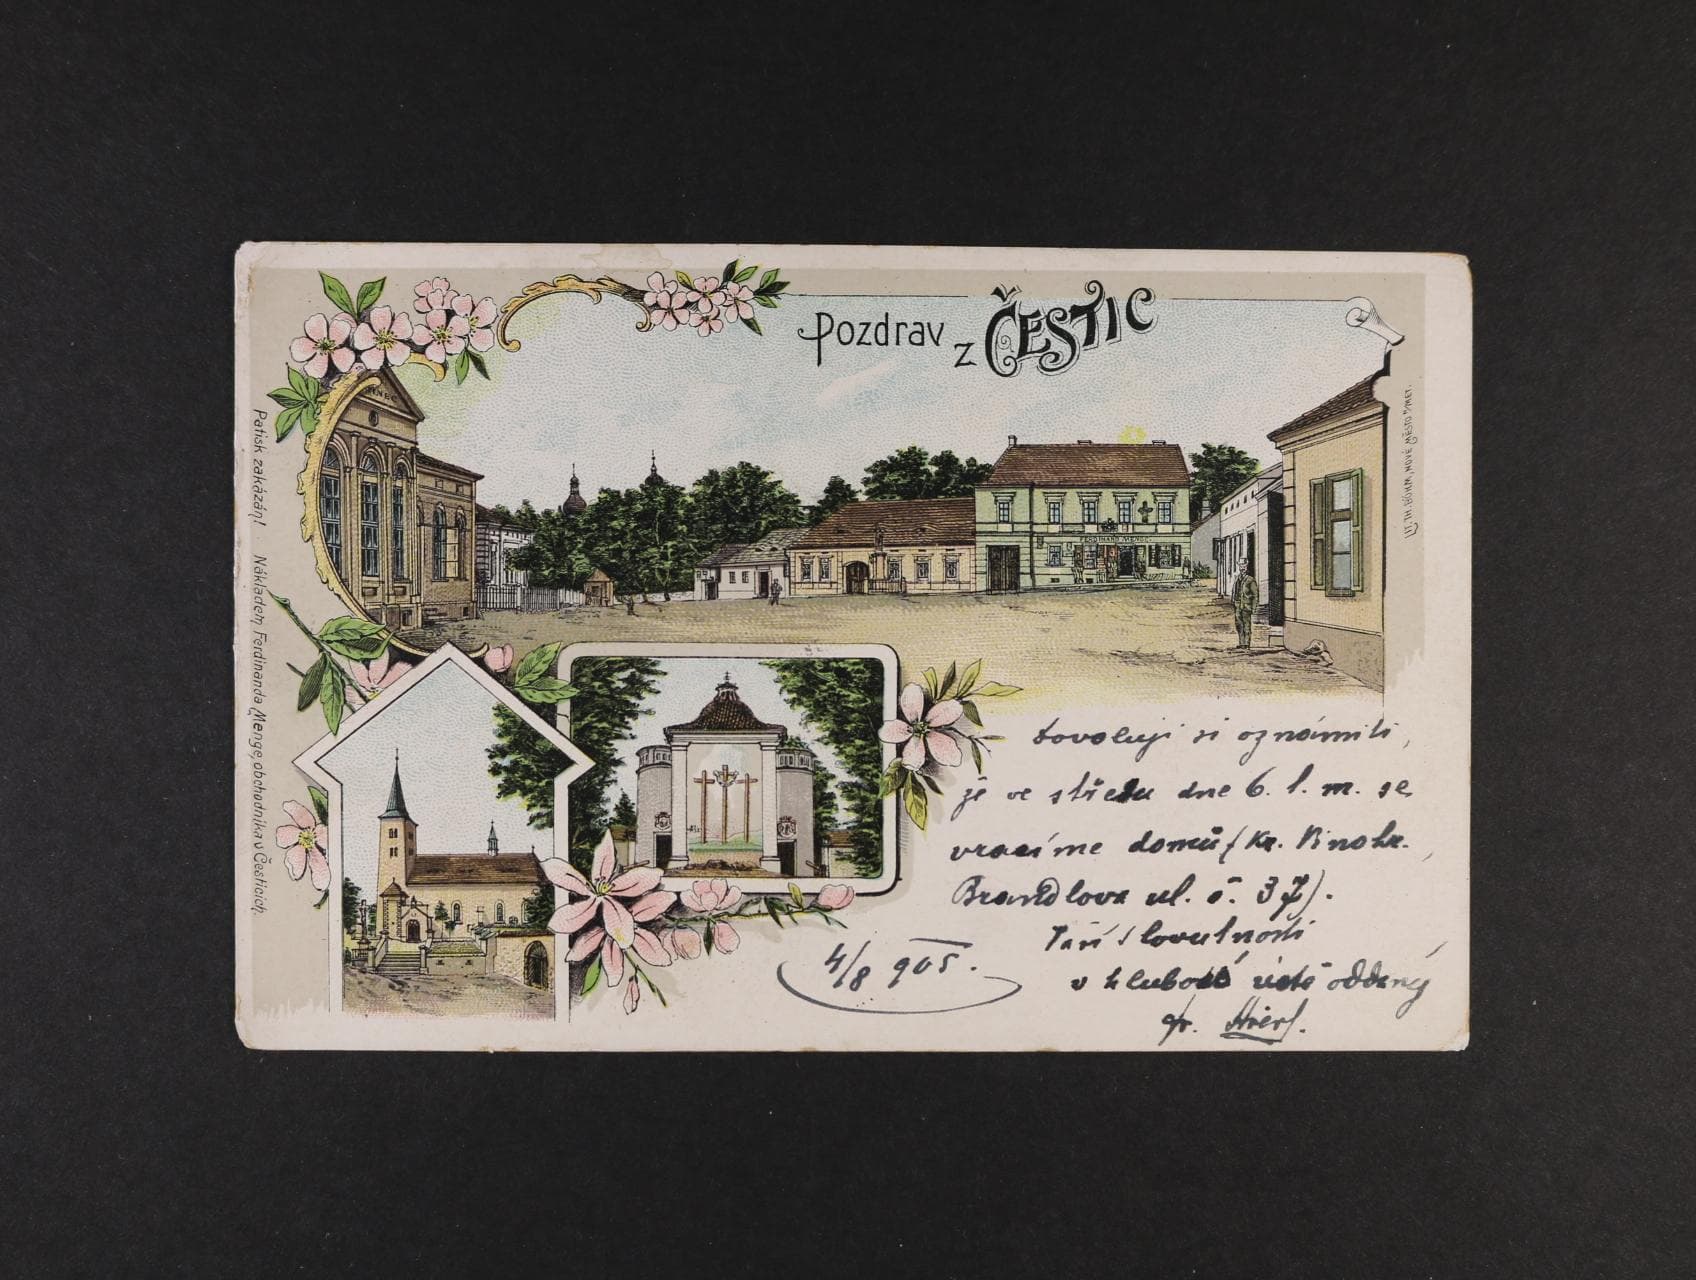 Pozdrav z ČESTIC
FERDINAND MENGE
Patisk zakázán! Nákladem Ferdinanda Menge, obchodníka v Česticích.
LIT. TH. BÖHM, NOVÉ MĚSTO n/MET.
Dovoluji si oznámiti,
že ve středu dne 6. t. m. se
vracíme domů (Kr. Vinohr.
Brandlova ul. č. 37).
Vaší slovutnosti
v hluboké úctě oddaný
4/8 905.
Fr.